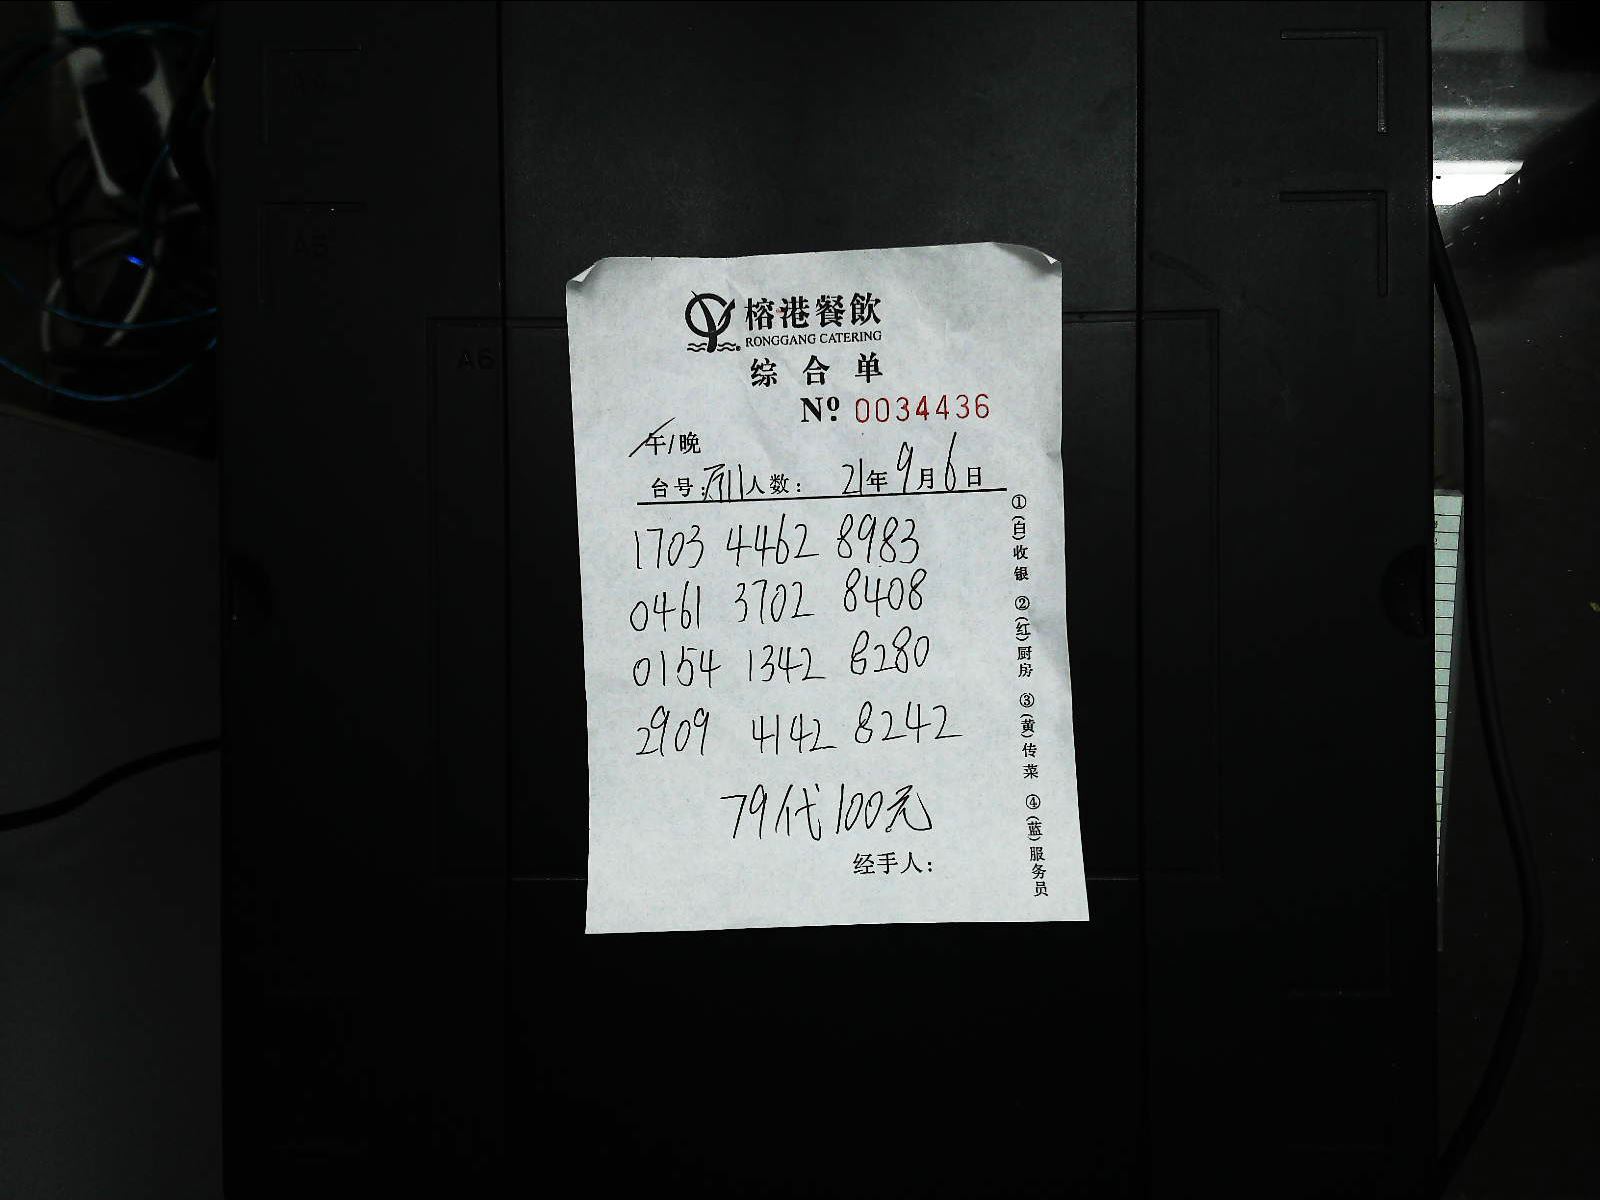 榕港餐飲
RONGGANG CATERING
综合单
Nº 0034436
午/晚
台号: 人数: 21年9月6日
1703 4462 8983
0461 3702 8408
0154 1342 8280
2909 4142 8242
79代100元
经手人:
①(白)收银 ②(红)厨房 ③(黄)传菜 ④(蓝)服务员
A5
A6